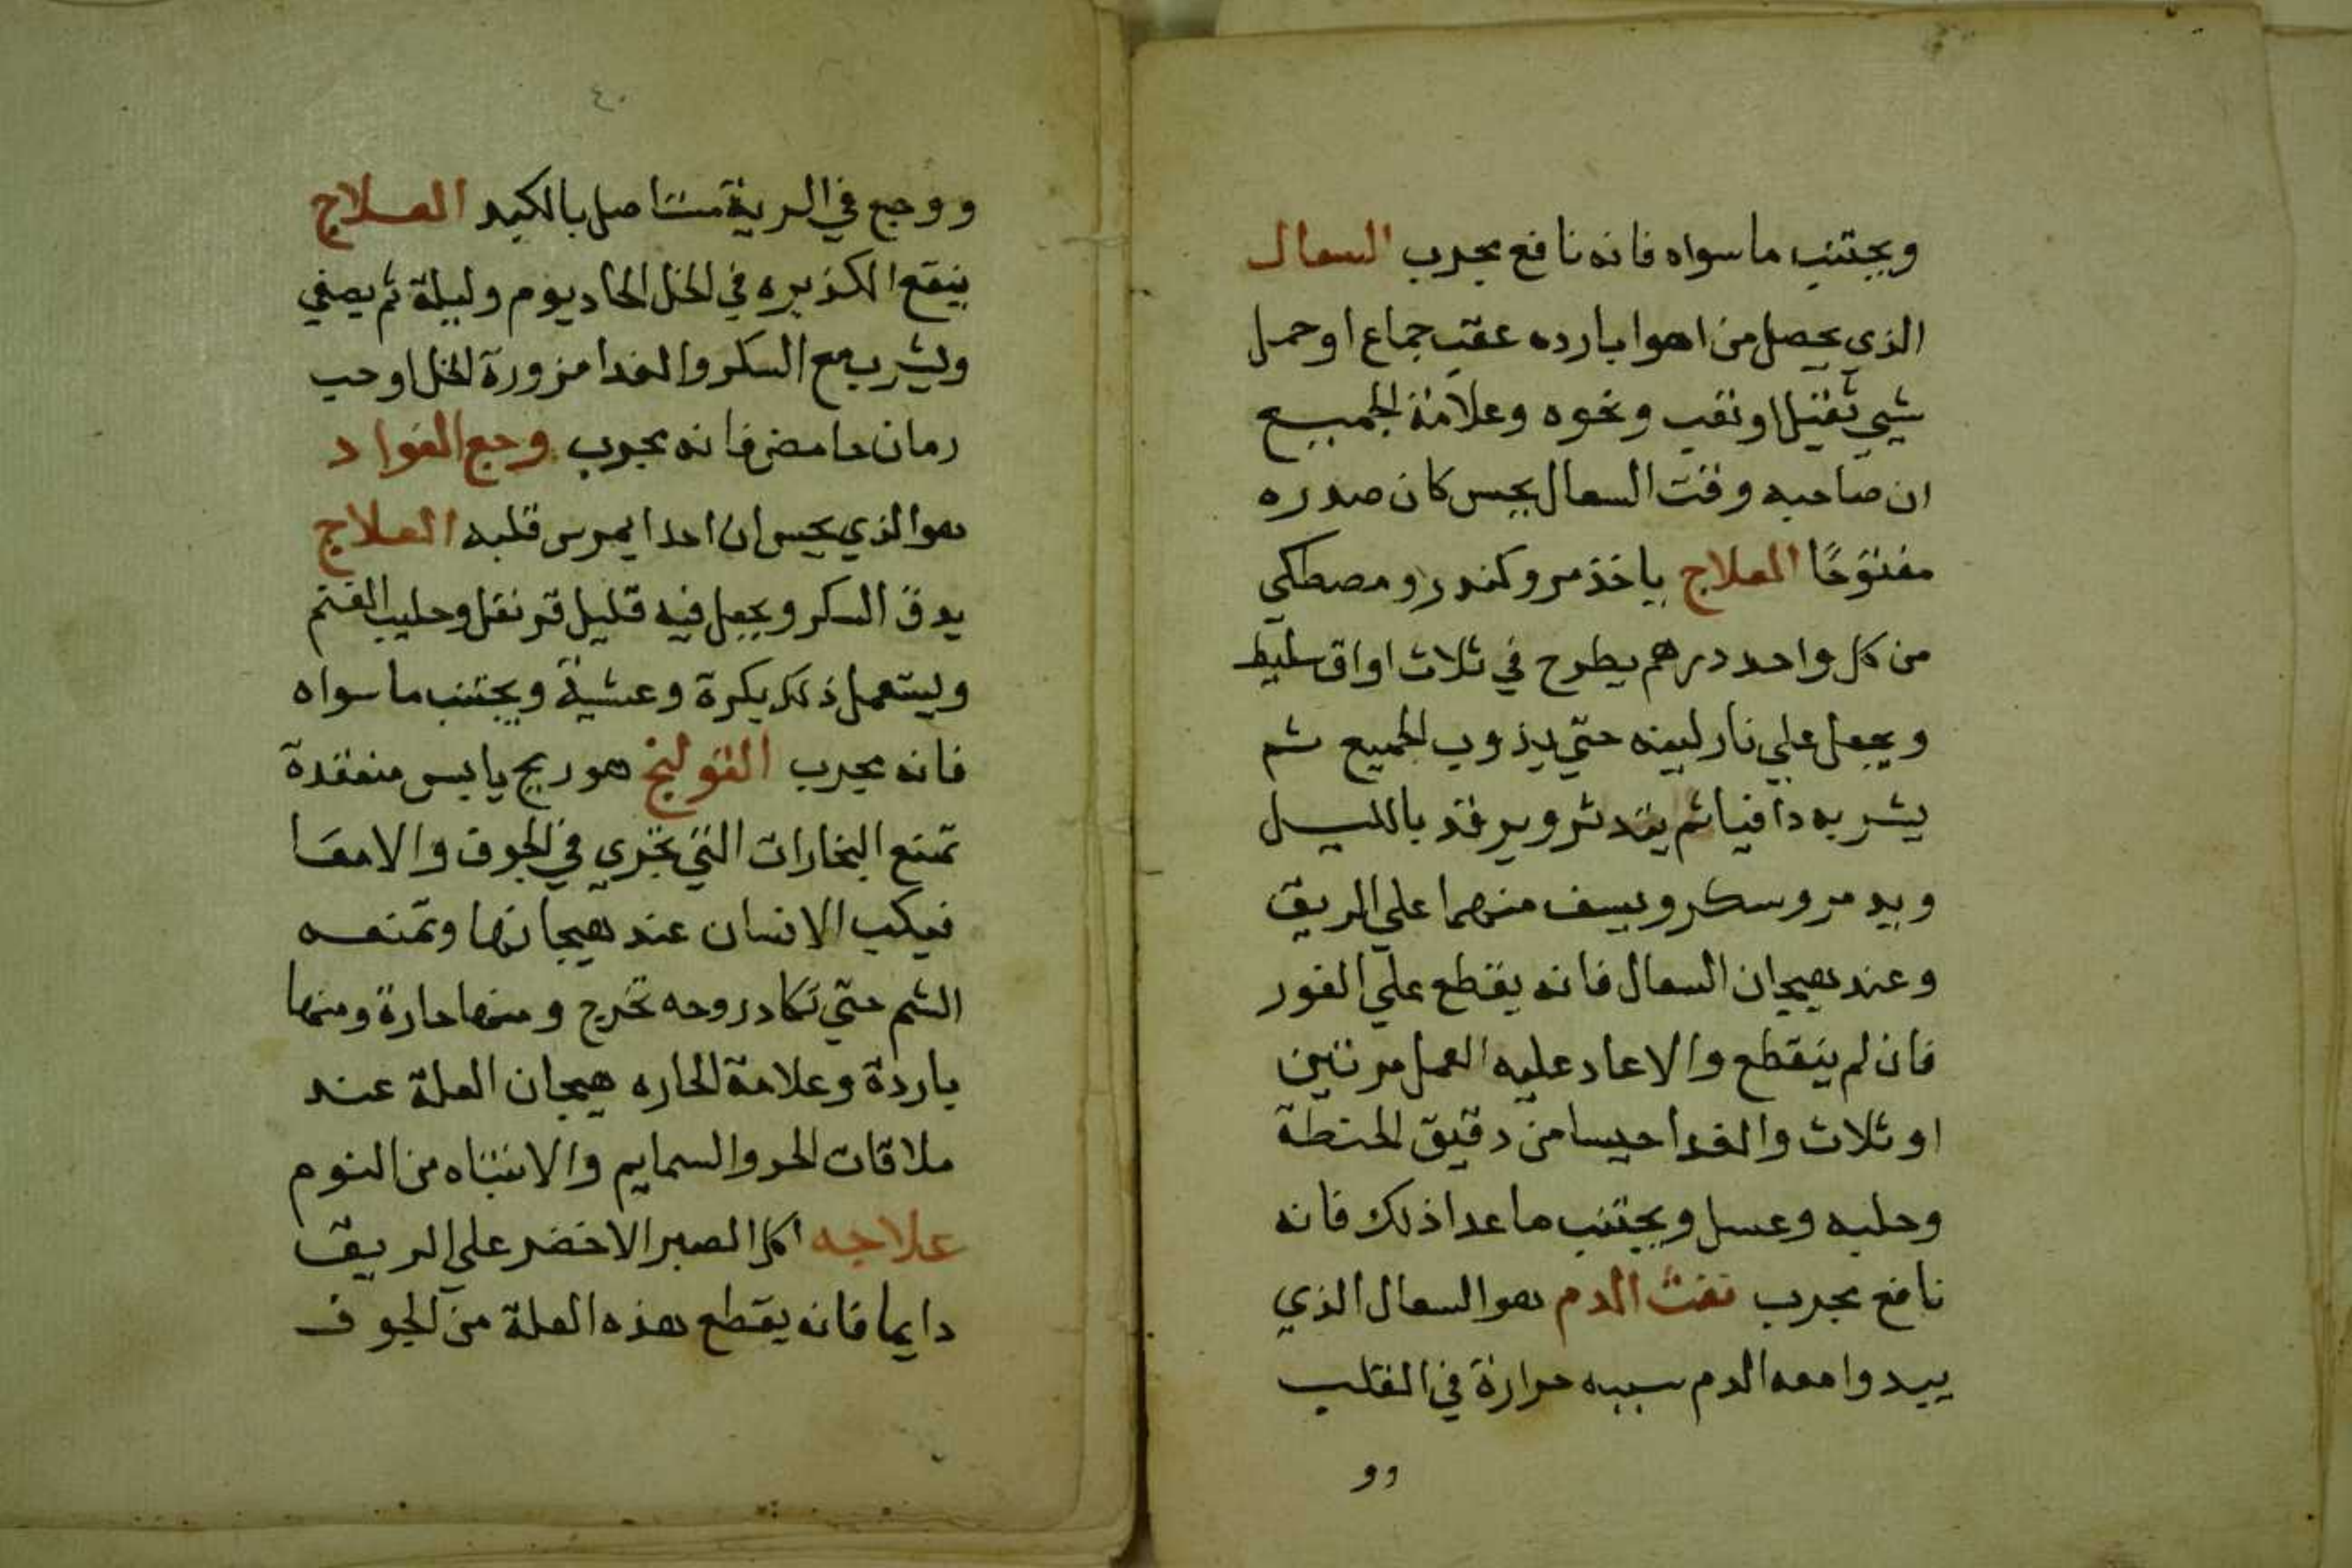 ويجتنب ما سواه فانه نافع مجرب السعال
الذي يحصل من اهوا بارده عقب جماع او حمل
شيي ثقيل او نقب ونحوه وعلامة الجميع
ان صاحبه وقت السعال يحس كان صدره
مفتوحًا العلاج ياخذ مر وكندر ومصطكي
من كل واحد درهم يطرح في ثلاث اواق سليط
ويجعل علي نار لينه حتي يذوب الجميع ثم
يشربه دافيا ثم يتدثر ويرقد بالليل
ويد مر وسكر ويسف منهما علي الريق
وعند هيجان السعال فانه يقطع علي الفور
فان لم ينقطع والا عاد عليه العمل مرتين
او ثلاث والغدا حيسا من دقيق الحنطة
وحلبه وعسل ويجتنب ما عدا ذلك فانه
نافع مجرب نفث الدم هو السعال الذي
يبدوا معه الدم سببه حرارة في القلب
وو
٤٠
ووجع في الرية متاصل بالكبد العلاج
ينقع الكزبره في الخل الحاد يوم وليلة ثم يصفي
ويشرب مع السكر والغدا مزورة الخل او حب
رمان حامض فانه مجرب وجع الفواد
هو الذي يحس ان احدا يمرس قلبه العلاج
يدق السكر ويجعل فيه قليل قرنفل وحليب الغنم
ويستعمل ذلك بكرة وعشية ويجتنب ما سواه
فانه مجرب القولنج هو ريح يابس منعقدة
تمنع البخارات التي تجري في الجوف والامعا
فيكب الانسان عند هيجانها وتمنعه
الشم حتي تكاد روحه تخرج ومنها حارة ومنها
باردة وعلامة الحاره هيجان العلة عند
ملاقات الحر والسمايم والانتباه من النوم
علاجه اكل الصبر الاخضر علي الريق
دايما فانه يقطع هذه العلة من الجوف